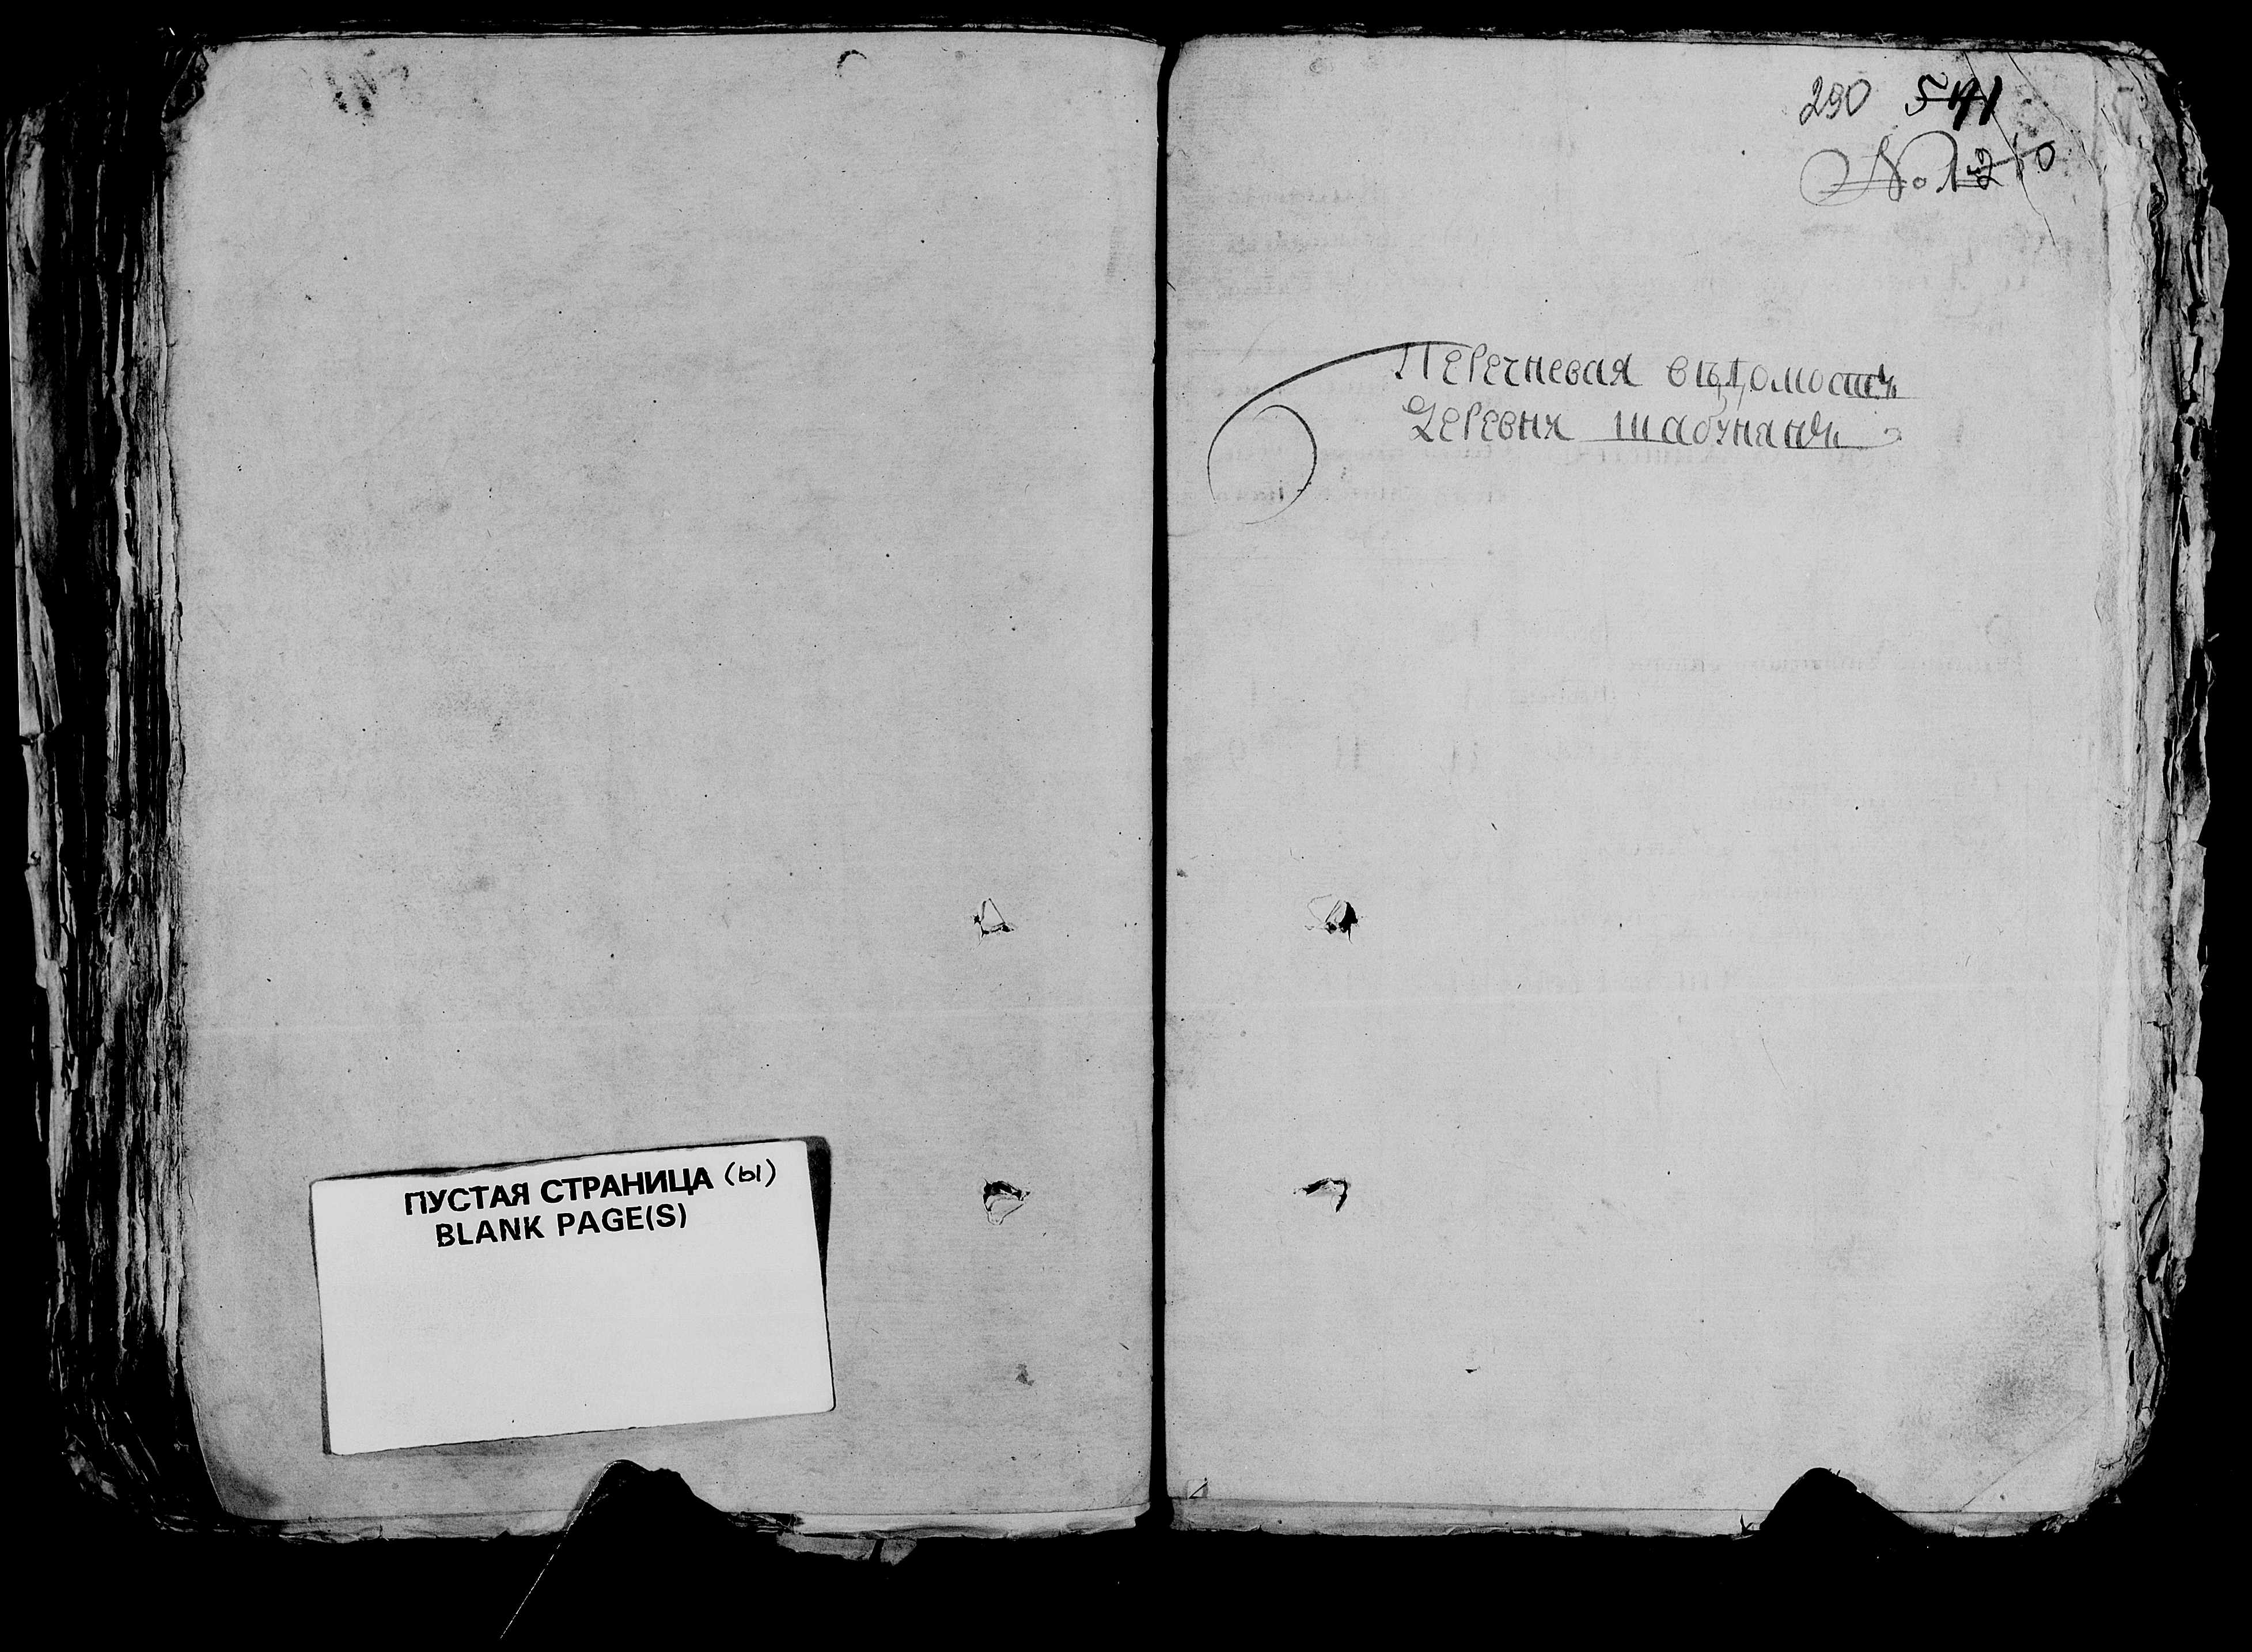 ПУСТАЯ СТРАНИЦА (ы)
BLANK PAGE(S)
290 541
Перечневая вѣдомость
Деревня шабунанъ